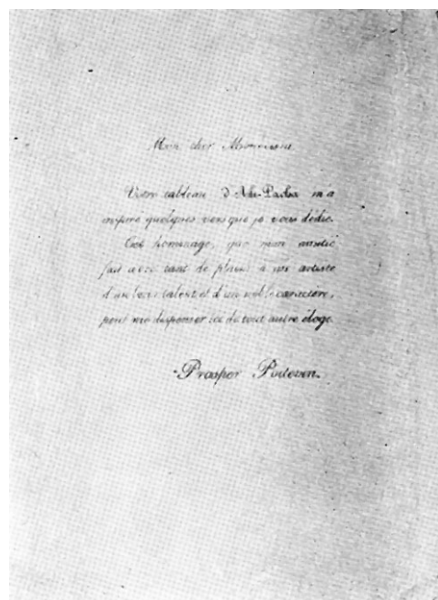 Mon cher Monvoisin
Votre tableau d'Ali-Pacha m'a
inspiré quelques vers que je vous dédie.
Cet hommage, que mon amitié
fait avec tant de plaisir à un artiste
d'un beau talent et d'un noble caractère,
peut me dispenser ici de tout autre éloge.
Prosper Poitevin.